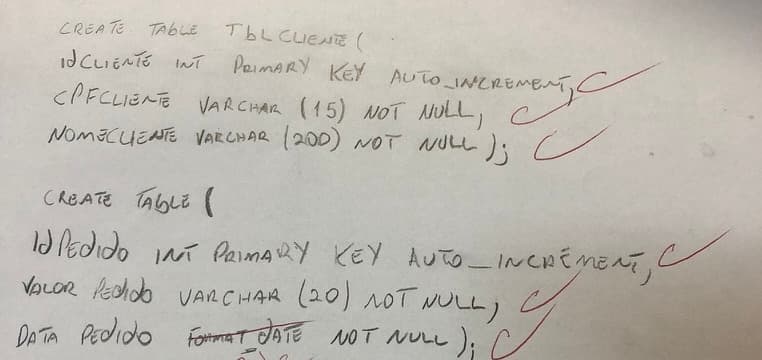 CREATE TABLE TbLCLIENTE(
IdCLIENTE INT PRIMARY KEY AUTO_INCREMENT,
CPFCLIENTE VARCHAR (15) NOT NULL,
NOMECLIENTE VARCHAR (200) NOT NULL);
CREATE TABLE (
IdPEdIdO INT PRIMARY KEY AUTO_INCREMENT,
VALOR PEdIdO VARCHAR (20) NOT NULL,
DATA PEDIdO FORMAT dATE NOT NULL);